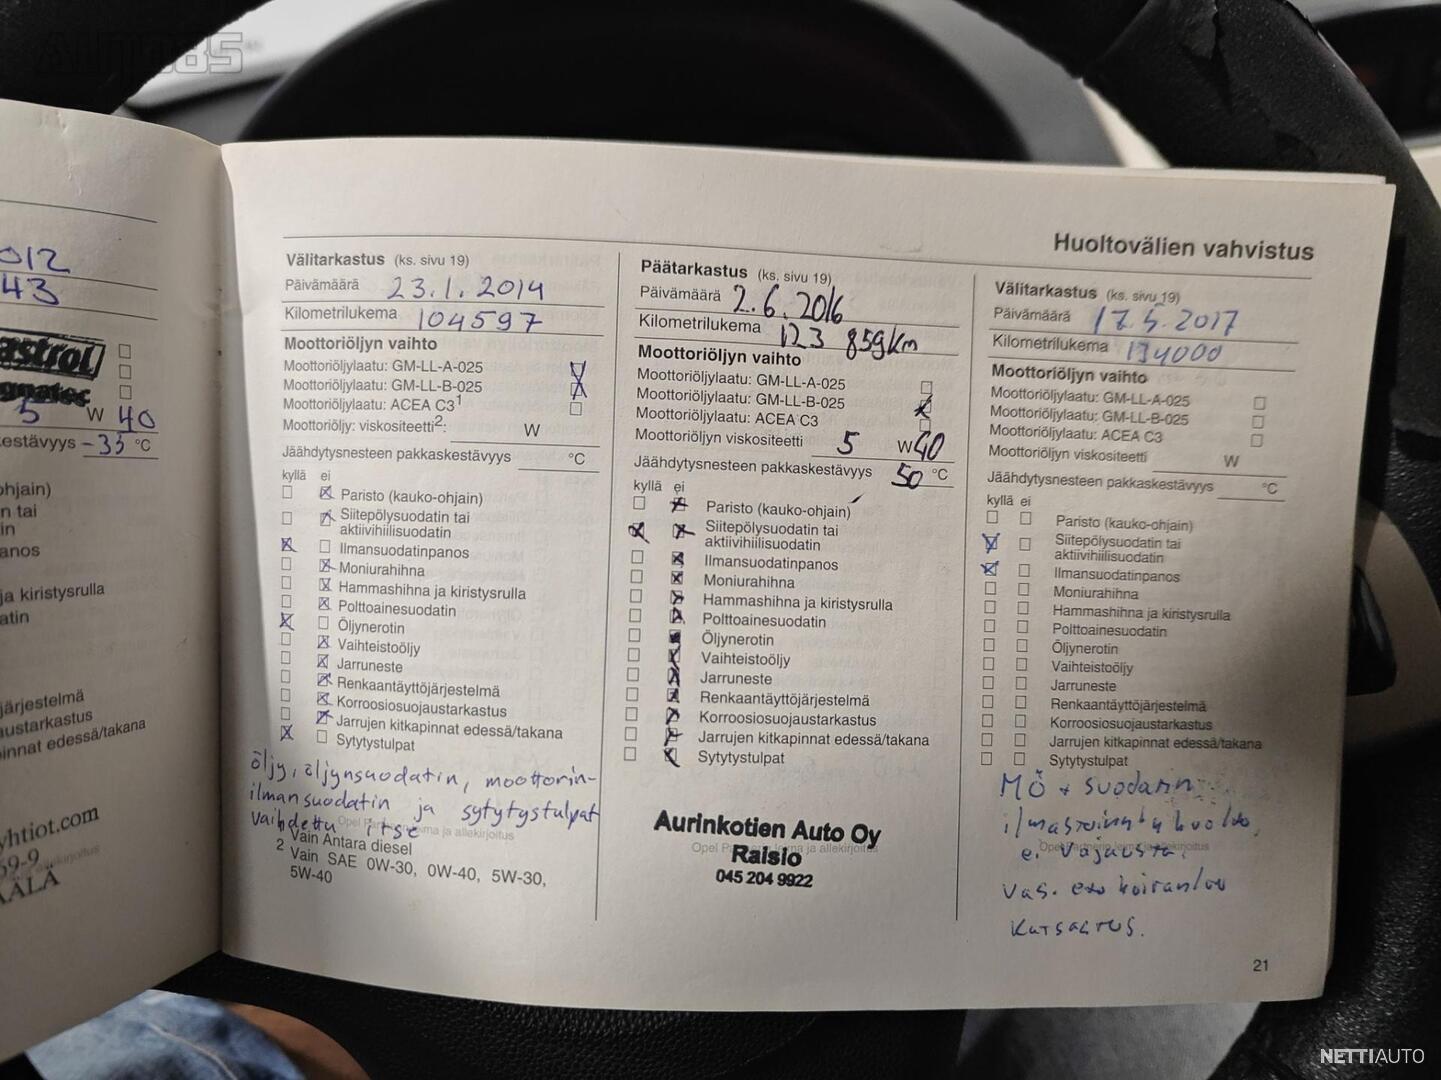 AUTO85
012
43
astrol
gnatec
5 W 40
kestävyys -35 °C
ohjain)
n tai
in
anos
ja kiristysrulla
atin
järjestelmä
austarkastus
pinnat edessä/takana
yhtiot.com
59-9
KÄLÄ
Huoltovälien vahvistus
Välitarkastus (ks. sivu 19)
Päivämäärä 23.1.2014
Kilometrilukema 104597
Moottoriöljyn vaihto
Moottoriöljylaatu: GM-LL-A-025
Moottoriöljylaatu: GM-LL-B-025
Moottoriöljylaatu: ACEA C3¹
Moottoriöljy: viskositeetti²: W
Jäähdytysnesteen pakkaskestävyys °C
kyllä ei
Paristo (kauko-ohjain)
Siitepölysuodatin tai
aktiivihiilisuodatin
Ilmansuodatinpanos
Moniurahihna
Hammashihna ja kiristysrulla
Polttoainesuodatin
Öljynerotin
Vaihteistoöljy
Jarruneste
Renkaantäyttöjärjestelmä
Korroosiosuojaustarkastus
Jarrujen kitkapinnat edessä/takana
Sytytystulpat
öljy, öljynsuodatin, moottorin-
ilmansuodatin ja sytytystulpat
vaihdettu itse
1 Vain Antara diesel
2 Vain SAE 0W-30, 0W-40, 5W-30,
5W-40
Päätarkastus (ks. sivu 19)
Päivämäärä 2.6.2016
Kilometrilukema 123 859km
Moottoriöljyn vaihto
Moottoriöljylaatu: GM-LL-A-025
Moottoriöljylaatu: GM-LL-B-025
Moottoriöljylaatu: ACEA C3
Moottoriöljyn viskositeetti 5 W40
Jäähdytysnesteen pakkaskestävyys 50 °C
kyllä ei
Paristo (kauko-ohjain)
Siitepölysuodatin tai
aktiivihiilisuodatin
Ilmansuodatinpanos
Moniurahihna
Hammashihna ja kiristysrulla
Polttoainesuodatin
Öljynerotin
Vaihteistoöljy
Jarruneste
Renkaantäyttöjärjestelmä
Korroosiosuojaustarkastus
Jarrujen kitkapinnat edessä/takana
Sytytystulpat
Aurinkotien Auto Oy
Opel Partnerin leima ja allekirjoitus
Raisio
045 204 9922
Välitarkastus (ks. sivu 19)
Päivämäärä 17.5.2017
Kilometrilukema 134000
Moottoriöljyn vaihto
Moottoriöljylaatu: GM-LL-A-025
Moottoriöljylaatu: GM-LL-B-025
Moottoriöljylaatu: ACEA C3
Moottoriöljyn viskositeetti W
Jäähdytysnesteen pakkaskestävyys °C
kyllä ei
Paristo (kauko-ohjain)
Siitepölysuodatin tai
aktiivihiilisuodatin
Ilmansuodatinpanos
Moniurahihna
Hammashihna ja kiristysrulla
Polttoainesuodatin
Öljynerotin
Vaihteistoöljy
Jarruneste
Renkaantäyttöjärjestelmä
Korroosiosuojaustarkastus
Jarrujen kitkapinnat edessä/takana
Sytytystulpat
MÖ + suodatin
ilmastointi huolto,
ei vajausta.
vas. etu
21
NETTIAUTO